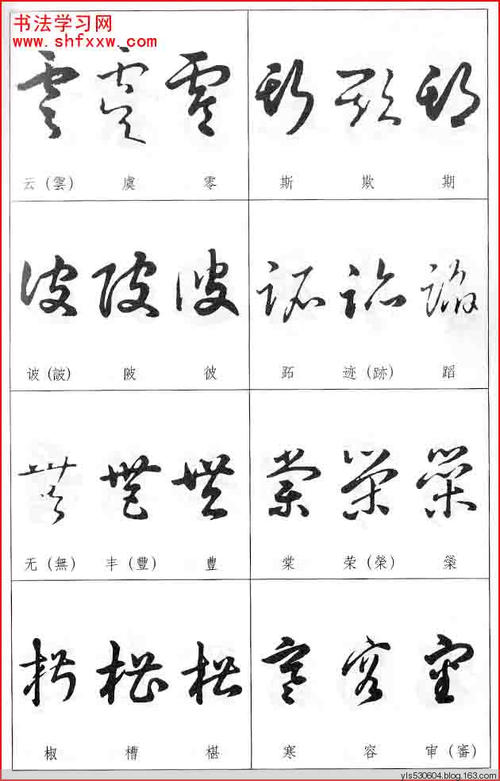 书法学习网
www.shfxxw.com
云（雲） 虞 零 斯 欺 期
诐（詖） 陂 彼 跖 迹（跡） 蹈
无（無） 丰（豐） 豊 棠 荣（榮） 槊
椒 槽 椹 寒 容 审（審）
yls530604.blog.163.com